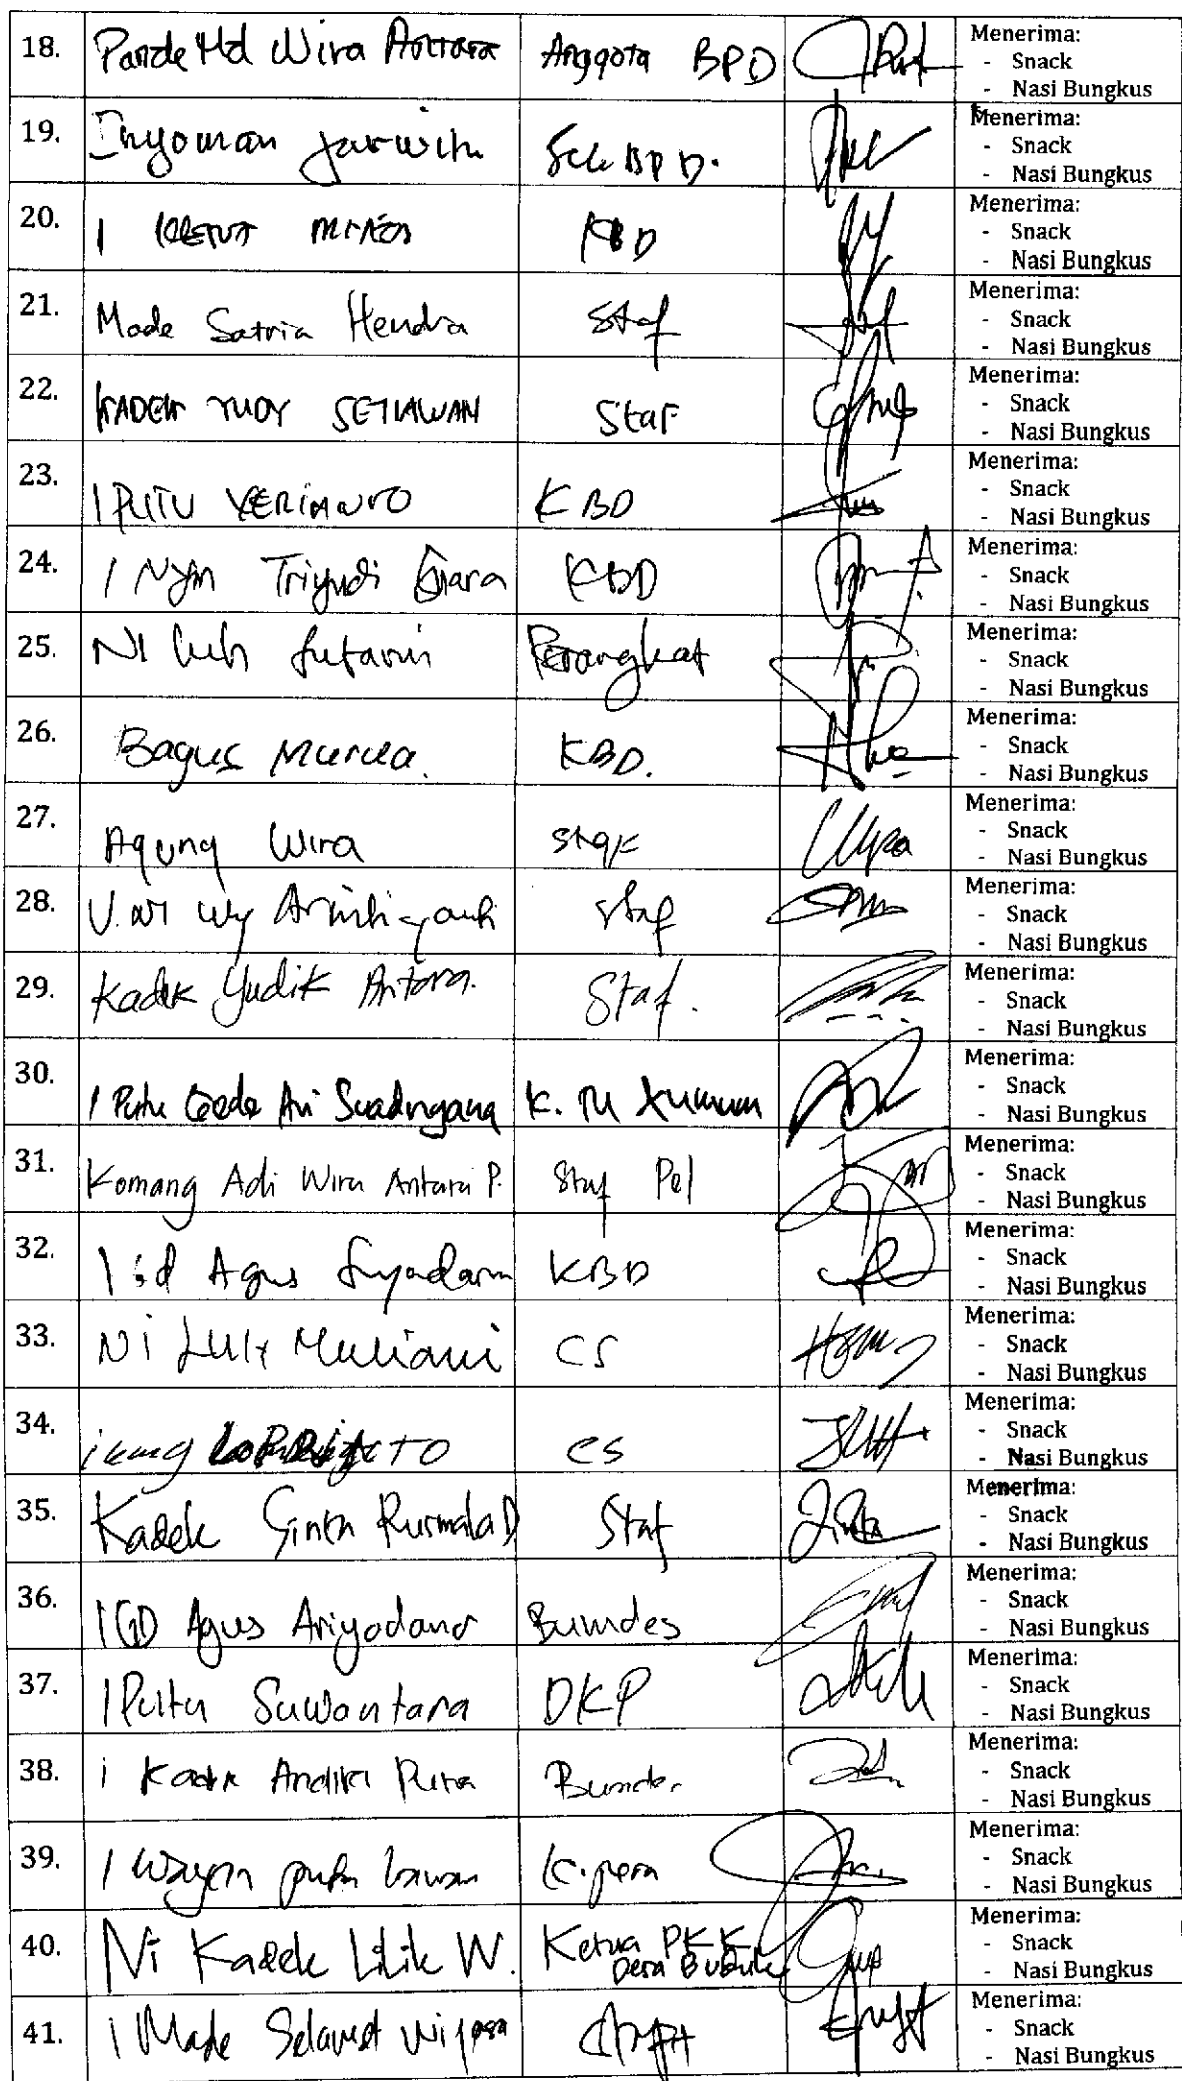 18. Pande Md Wira Antara Anggota BPD Menerima:
- Snack
- Nasi Bungkus
19. I nyoman Jarwith Sek BPD. Menerima:
- Snack
- Nasi Bungkus
20. I KETUT KBD Menerima:
- Snack
- Nasi Bungkus
21. Made Satria Hendra Staf Menerima:
- Snack
- Nasi Bungkus
22. KADEK YUDY SETIAWAN Staf Menerima:
- Snack
- Nasi Bungkus
23. I PUTU KBD Menerima:
- Snack
- Nasi Bungkus
24. I Nym Triyudi KBD Menerima:
- Snack
- Nasi Bungkus
25. NI luh Sutarini Perangkat Menerima:
- Snack
- Nasi Bungkus
26. Bagus KBD. Menerima:
- Snack
- Nasi Bungkus
27. Agung Wira Staf Menerima:
- Snack
- Nasi Bungkus
28. Wy staf Menerima:
- Snack
- Nasi Bungkus
29. Kadek Yudik Antara. Staf. Menerima:
- Snack
- Nasi Bungkus
30. I Putu Gede Ari K. Menerima:
- Snack
- Nasi Bungkus
31. Komang Adi Wira Antara P. Staf Pel Menerima:
- Snack
- Nasi Bungkus
32. I Gd Agus Suyadarm KBD Menerima:
- Snack
- Nasi Bungkus
33. Ni Luh Muliani CS Menerima:
- Snack
- Nasi Bungkus
34. CS Menerima:
- Snack
- Nasi Bungkus
35. Kadek Sinta Purmala D Staf Menerima:
- Snack
- Nasi Bungkus
36. I GD Agus Ariyodana Bumdes Menerima:
- Snack
- Nasi Bungkus
37. I Putu Suwantara DKP Menerima:
- Snack
- Nasi Bungkus
38. i Kadek Andika Putra Menerima:
- Snack
- Nasi Bungkus
39. I Wayan putu Menerima:
- Snack
- Nasi Bungkus
40. Ni Kadek Lilik W. Ketua PKK Menerima:
- Snack
- Nasi Bungkus
41. i Made Selamet Menerima:
- Snack
- Nasi Bungkus